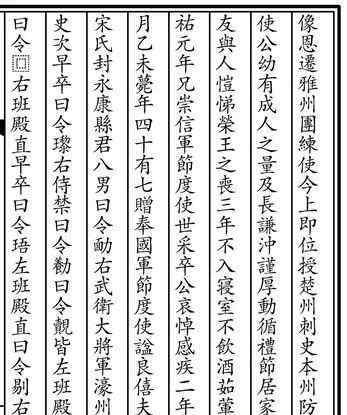 像恩遷雅州團練使今上即位授楚州刺史本州防
使公幼有成人之量及長謙沖謹厚動循禮節居家
友與人愷悌榮王之喪三年不入寢室不飲酒茹葷
祐元年兄崇信軍節度使世采卒公哀悼感疾二年
月乙未薨年四十有七贈奉國軍節度使諡良僖夫
宋氏封永康縣君八男曰令勔右武衛大將軍濠州
史次早卒曰令瓈右侍禁曰令勸曰令覿皆左班殿
曰令□右班殿直早卒曰令珸左班殿直曰令剔右